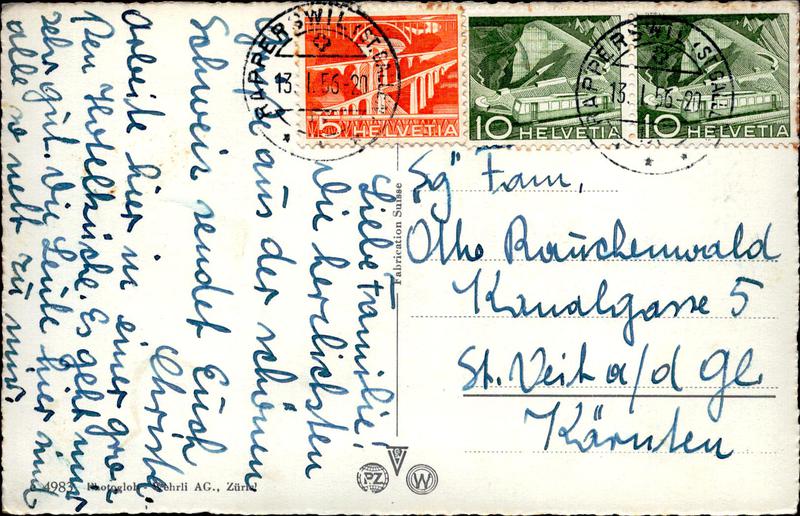 RAPPERSWIL (ST.GALLEN)
13. I. 56-20
5 HELVETIA
10 HELVETIA
10 HELVETIA
RAPPERSWIL (ST.GALLEN)
13. I. 56-20
Liebe Familie!
Die herzlichsten
Grüsse aus der schönen
Schweiz sendet Euch
Christa.
Arbeite hier in einer gros
sen Hotelküche. Es geht mir
sehr gut. Die Leute hier sind
alle so nett zu mir.
Fabrication Suisse
Sg" Fam.
Otto Rauchenwald
Kanalgasse 5
St. Veit a/d Gl.
Kärnten
4983 Photoglob-Wehrli AG., Zürich
PZ
W